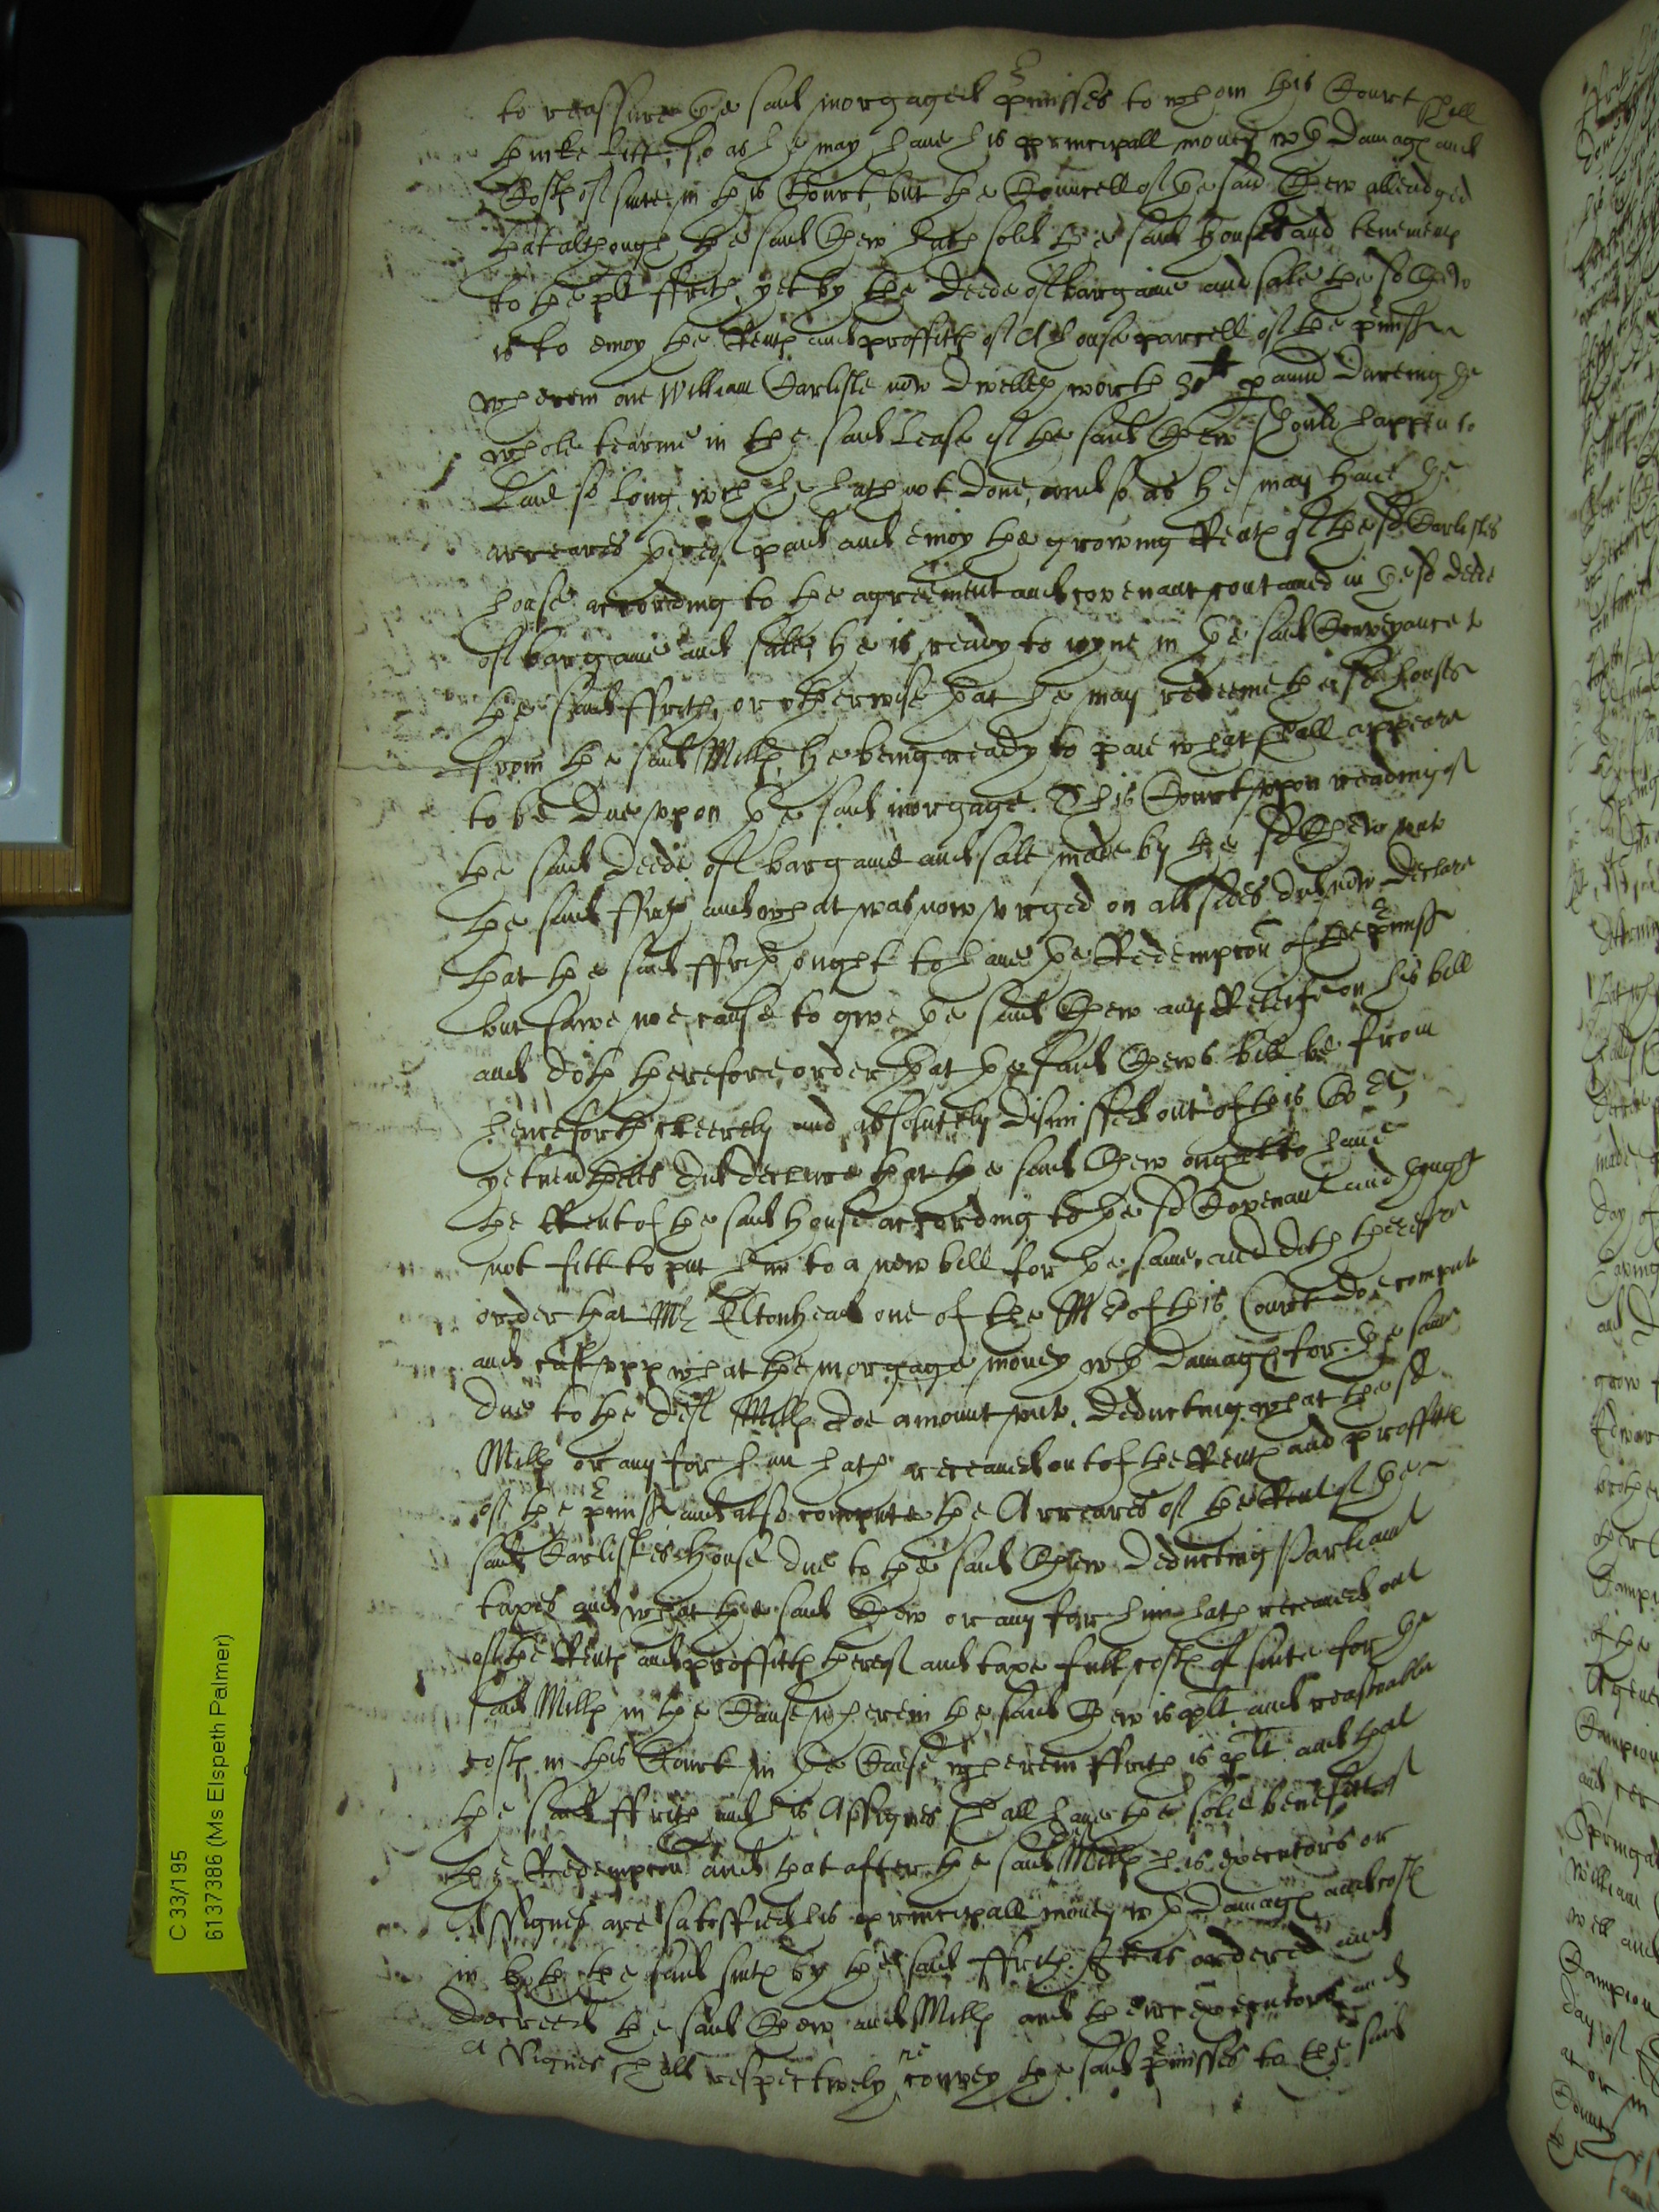 to reassure the said morgaged pmisses to whom this Court shall
thinke fitt, so as he may have his principall money wth Damage and
Costs of suite in this Court, but the Councell of the said Chew alleadged
that although the said Chew hath sold the said houses and tenemts
to the plt ffrith, yet by the Deede of bargaine and sale the sd Chew
is to enioy the Rents and proffitts of A house parcell of the pmisses
wherein one William Carlisle now Dwells worth 30 p annu Dureing the
whole tearme in the said Lease if the said Chew should happen to
Live so long, wch he hath not done, and so as he may have the
arreares thereof paid and enioy the growing Rents of the sd Carlisles
house according to the agreement and covenant contained in the sd deede
of bargaine and sale, he is ready to ioyne in the said Conveyance to
the said ffrith, or otherwise that he may redeeme the sd houses
from the said Mills, he being ready to paie what shall appeare
to be Due upon the said morgage. This Court upon reading of
the said Deede of bargaine and sale made by the sd Chew unto
the said ffrith and what was now urged on all sides did now Declare
that the said ffrith ought to have the Redempcon of the pmiss
but sawe noe cause to give the said Chew any Releife on his bill
and doth therefore order that the said Chews bill be from
henceforth cleerely and absolutely dismissed out of this Cort,
yet nevertheles did declare that the said Chew ought to have
the Rent of the said house according to the sd Covenant and thought
not fitt to put him to a new bill for the same, and doth therefore
order that Mr Eltonhead one of the Mrs of this Court doe compute
and cast upp what the morgage money wth Damage for the same
due to the deft Mills doe amount unto, Deducting what the sd
Mills or any for him hath receaved out of the Rents and proffitts
of the pmiss and also compute the Arreares of the Rent of the
said Carlisles House due to the said Chew Deducting Parliamt
taxes and what the said Chew or any for him hath receaved out
of the Rents and proffitts thereof and taxe full costs of suite for the
said Mills in the Cause wherein the said Chew is plt and reasonable
costs in this Court in the Cause wherein ffrith is plt. and that
the said ffrith and his Assignes shall have the sole benefitt of
the Redempcon and that after the said Mills his executors or
Assignes are satisffied his principall money wth Damage and costs
in both the said suits by the said ffrith. It is ordered and
Decreed the said Chew and Mills and their executors and
Assignes shall respectively convey the said pmisses to the said
C 33/195
6137386 (Ms Elspeth Palmer)